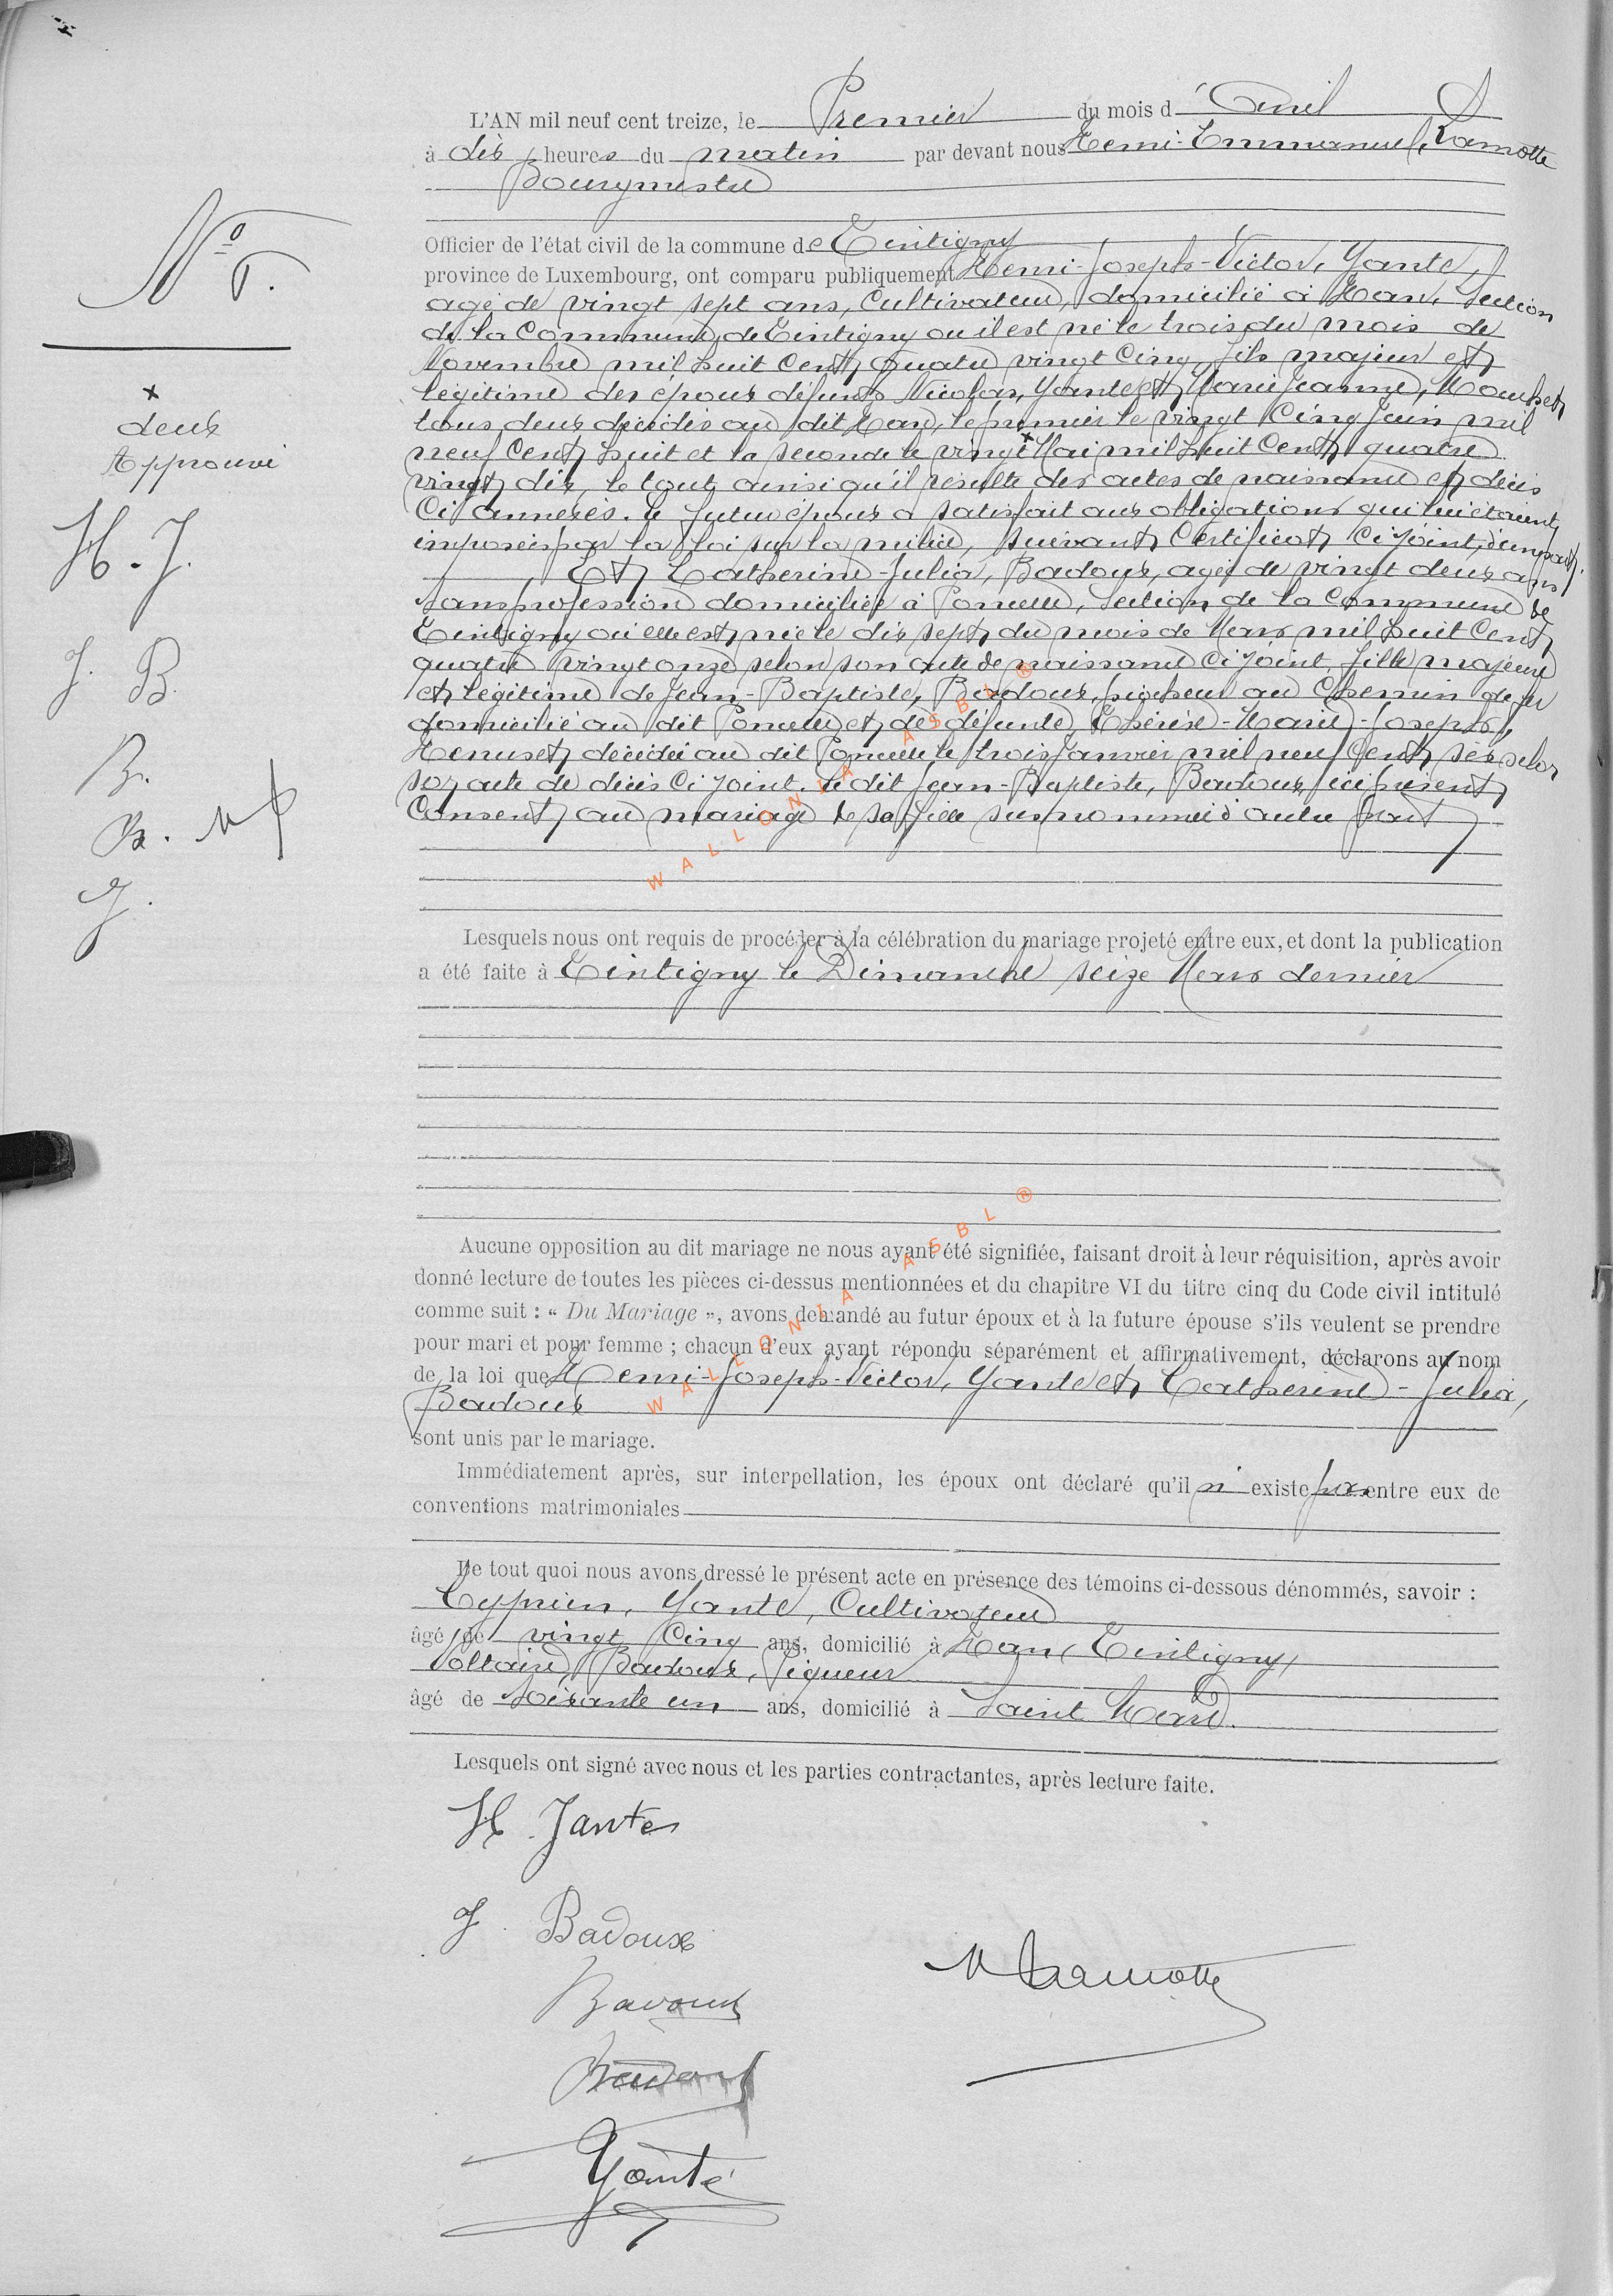 L'AN mil neuf cent treize, le Premier du mois d'Avril
à dix heures du matin par devant nous Henri-Emmanuel, Lamotte
Bourgmestre
Officier de l'état civil de la commune de Tintigny
province de Luxembourg, ont comparu publiquement Henri-Joseph-Victor, Yante,
agé de vingt sept ans, Cultivateur, domicilié à Han, Section
de la Commune de Tintigny ou il est né le trois du mois de
Novembre mil huit Cent quatre vingt Cinq, fils majeur et
légitime des époux défunts Nicolas, Yante et Marie Jeanne,
tous deux décédés au dit Han, le premier le vingt Cinq Juin mil
neuf Cent huit et la seconde le vingt × Mai mil huit Cent quatre
vingt dix, le tout ainsi qu'il résulte des actes de naissance et décès
Ci annexés. le futur époux a satisfait aux obligations qui lui étaient
imposées par la loi sur la milice, suivant Certificat Ci joint, d'une part.
Et Catherine-Julia, Badoux, agée de vingt deux ans
sans profession domiciliée à Poncelle, Section de la Commune de
Tintigny où elle est née le dix sept du mois de Mars mil huit Cent
quatre vingt onze selon son acte de naissance Ci joint, fille majeure
et légitime de Jean-Baptiste, Badoux, piocheur au Chemin de fer
domicilié au dit Poncelle et de défunte, Thérèse-Marie-Joseph,
Henuset décédée au dit Poncelle le trois Janvier mil neuf Cent six selon
son acte de décès Ci joint. Le dit Jean-Baptiste, Badoux, ici présent
Consent au mariage de sa fille susnommée d'autre part
N° 5.
×
deux
Approuvé
H. J.
J. B.
B.
B.
Y.
Lesquels nous ont requis de procéder à la célébration du mariage projeté entre eux, et dont la publication
a été faite à Tintigny le Dimanche seize Mars dernier
Aucune opposition au dit mariage ne nous ayant été signifiée, faisant droit à leur réquisition, après avoir
donné lecture de toutes les pièces ci-dessus mentionnées et du chapitre VI du titre cinq du Code civil intitulé
comme suit : « Du Mariage », avons demandé au futur époux et à la future épouse s'ils veulent se prendre
pour mari et pour femme ; chacun d'eux ayant répondu séparément et affirmativement, déclarons au nom
de la loi que Henri-Joseph-Victor, Yante et Catherine-Julia,
Badoux
sont unis par le mariage.
Immédiatement après, sur interpellation, les époux ont déclaré qu'il n'existe pas entre eux de
conventions matrimoniales
De tout quoi nous avons dressé le présent acte en présence des témoins ci-dessous dénommés, savoir :
Cyprien, Yante, Cultivateur
âgé de vingt Cinq ans, domicilié à Han (Tintigny)
Voltaire, Badoux, Piqueur
âgé de soixante un ans, domicilié à Saint Mard.
Lesquels ont signé avec nous et les parties contractantes, après lecture faite.
H. Jante
J. Badoux
Badoux
Lamotte
Badoux
Yante
WALLONIA ASBL ®
WALLONIA ASBL ®